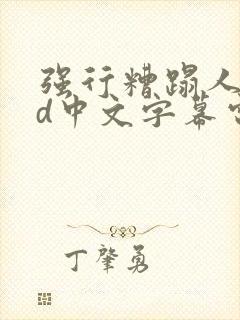 强行糟蹋人
d中文字幕
丁肇勇